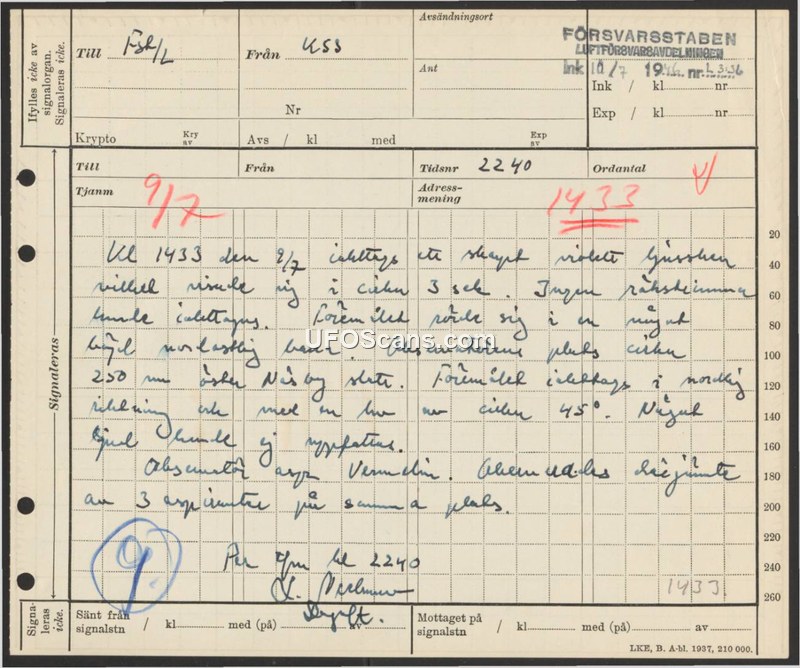 Avsändningsort
Ifylles icke av signalorgan. Signaleras icke.
Till Fst/L Från KSS
FÖRSVARSSTABEN
LUFTFÖRSVARSAVDELNINGEN
Ink 10/7 1946 nr L
Ant
Ink / kl nr
Nr
Exp / kl nr
Krypto Kry av Avs / kl med Exp av
Till Från Tidsnr 2240 Ordantal
Tjanm 9/7 Adress- mening 1433
Signaleras
Kl 1433 den 9/7 iakttogs ett skarpt violett ljussken
vilket visade sig i cirka 3 sek. Ingen rökstrimma
kunde iakttagas. Föremålet rörde sig i en något
böjd nordostlig bana. Observatörens plats cirka
250 m öster Näsby slott. Föremålet iakttogs i nordlig
riktning och med en höjd av cirka 45°. Något
ljud kunde ej uppfattas.
Observatör asp. Observerades därjämte
av 3 aspiranter på samma plats.
9.
Per tfm kl 2240
1433
20
40
60
80
100
120
140
160
180
200
220
240
260
Signa- leras icke.
Sänt från signalstn / kl med (på) av
Mottaget på signalstn / kl med (på) av
LKE, B. A-bl. 1937, 210 000.
UFOScans.com